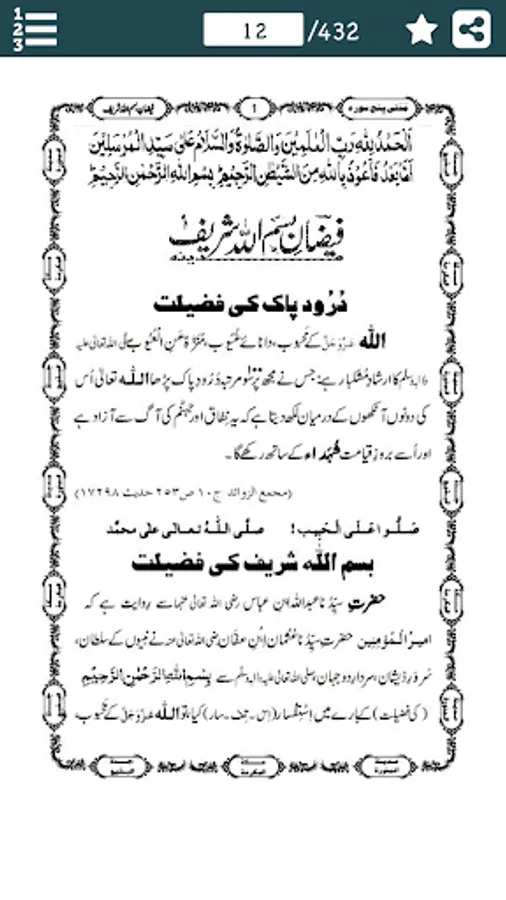 1
2
3
12
/432
فیضانِ بسم اللہ شریف
1
جنتی پنج سورہ
اَلْحَمْدُ لِلّٰهِ رَبِّ الْعٰلَمِیْنَ وَالصَّلٰوةُ وَالسَّلَامُ عَلٰی سَیِّدِ الْمُرْسَلِیْنَ
اَمَّا بَعْدُ فَاَعُوْذُ بِاللّٰهِ مِنَ الشَّیْطٰنِ الرَّجِیْمِ ؕ بِسْمِ اللّٰهِ الرَّحْمٰنِ الرَّحِیْمِ ؕ
فیضانِ بسم اللہ شریف
دُرُود پاک کی فضیلت
اللہ عَزَّوَجَلَّ کے مَحبوب، دانائے غُیُوب، مُنَزَّہٌ عَنِ الْعُیُوب صلی اللہ تعالیٰ علیہ
واٰلہ وسلم کا ارشادِ مُشکبار ہے: جس نے مجھ پر سو مرتبہ دُرُودِ پاک پڑھا اللہ تعالیٰ اُس
کی دونوں آنکھوں کے درمیان لکھ دیتا ہے کہ یہ نفاق اور جہنّم کی آگ سے آزاد ہے
اور اُسے بروزِ قیامت شُہَداء کے ساتھ رکھے گا۔
(مجمع الزوائد ج۱۰ ص۲۵۳ حدیث ۱۷۲۹۸)
صَلُّوا عَلَی الْحَبِیب! صلَّی اللہُ تعالٰی علٰی محمَّد
بسم اللہ شریف کی فضیلت
حضرتِ سیِّدُنا عبداللہ ابنِ عباس رضی اللہ تعالیٰ عنہما سے روایت ہے کہ
امیرُ الْمُؤْمِنِین حضرتِ سیِّدُنا عُثمان اِبْنِ عفّان رضی اللہ تعالیٰ عنہ نے نبیوں کے سلطان،
سَرورِ ذیشان، سردارِ دو جہان صلی اللہ تعالیٰ علیہ واٰلہ وسلم سے بِسْمِ اللّٰهِ الرَّحْمٰنِ الرَّحِیْم
(کی فضیلت) کے بارے میں اِسْتِفْسار (اِس۔تِف۔سار) کیا، تو اللہ عَزَّوَجَلَّ کے مَحبوب